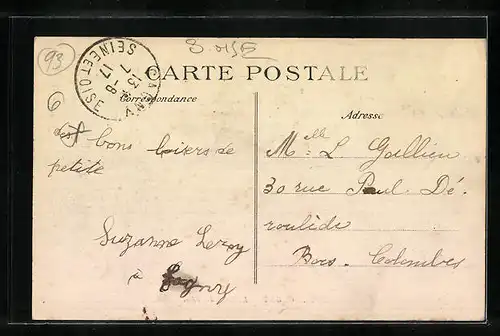 93
S. OISE
GAGNY
SEINE ET OISE
13 H
7 -8
17
CARTE POSTALE
Correspondance
Adresse
6
bons baisers de
petite
Suzanne Leroy
à Gagny
Melle L. Gallien
30 rue Paul Dé-
roulède
Bois-Colombes